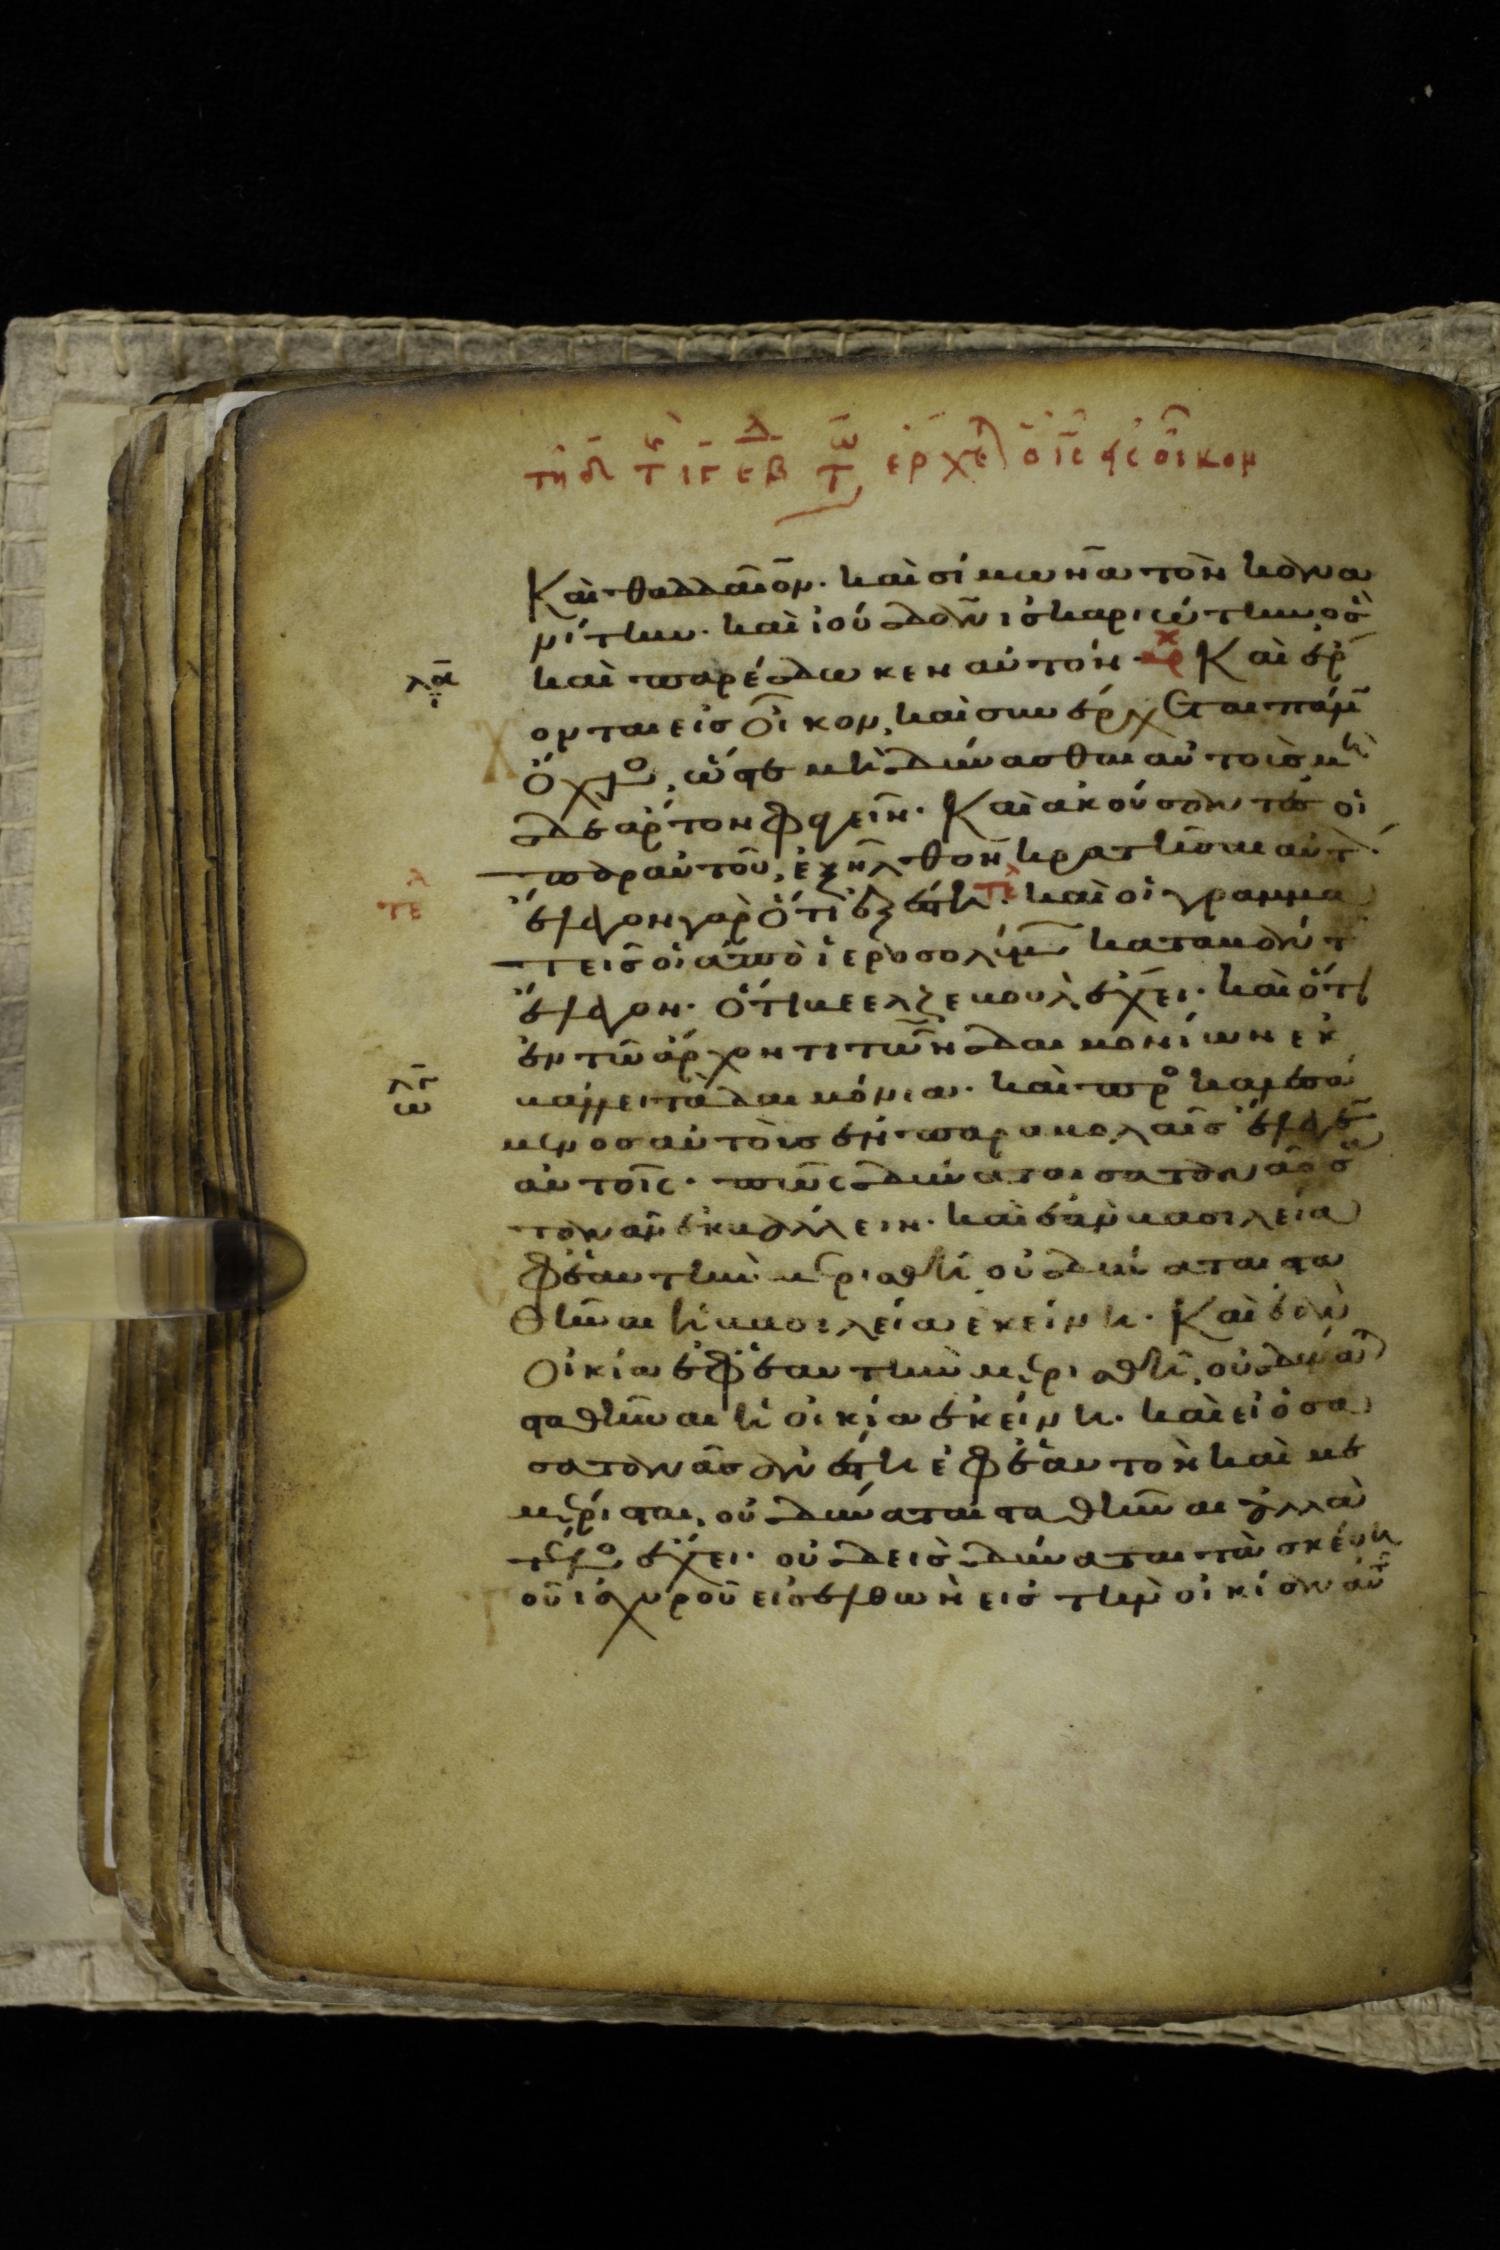 τῆ δ̅ τ ιγ εβ τ ερχε ὁ ι̅ς εἰς οἶκον
Καὶ θαδδαῖον· καὶ σίμωνα τὸν κανα
νίτην· καὶ ἰούδαν ἰσκαριώτην ὃς
λα
καὶ παρέδωκεν αὐτόν αρ χ Καὶ έρχ
ονται εἰς οἶκον, καὶ συνέρχεται πάλιν
ὄχλος, ὥστε μὴ δύνασθαι αὐτοὺς μή
δε ἄρτον φαγεῖν· Καὶ ἀκούσαντες οἱ
παρ αὐτοῦ, ἐξῆλθον κρατῆσαι αὐτ·
τελ
ἔλεγον γὰρ ὅτι ἐξέστη τελ· καὶ οἱ γραμμα
τεῖς οἱ ἀπὸ ἱεροσολύμων καταβάντ
ἔλεγον· ὅτι βεελζεβοὺλ ἔχει· καὶ ὅτι
ἐν τῶ ἄρχοντι τῶν δαιμονίων ἐκ
λγ
ω
βάλλει τὰ δαιμόνια· καὶ προσκαλεσά
μενος αὐτοὺς ἐν παραβολαῖς ἔλεγεν
αὐτοῖς· πῶς δύναται σατανᾶς σα
τανᾶν ἐκβάλλειν· καὶ ἐὰν βασιλεία
ἐφ ἑαυτὴν μερισθῆ οὐ δύναται στα
θῆναι ἡ βασιλεία ἐκείνη· Καὶ ἐὰν
οἰκία ἐφ ἑαυτὴν μερισθῆ, οὐ δύνα
σταθῆναι ἡ οἰκία ἐκείνη· καὶ εἰ ὁ σα
σατανᾶς ἀνέστη ἐφ ἑαυτὸν καὶ με
μέρισται, οὐ δύναται σταθῆναι ἀλλὰ
τέλος ἔχει· οὐδεὶς δύναται τὰ σκεύη
οῦ ἰσχυροῦ εἰσελθὼν εἰς τὴν οἰκίαν αὐ